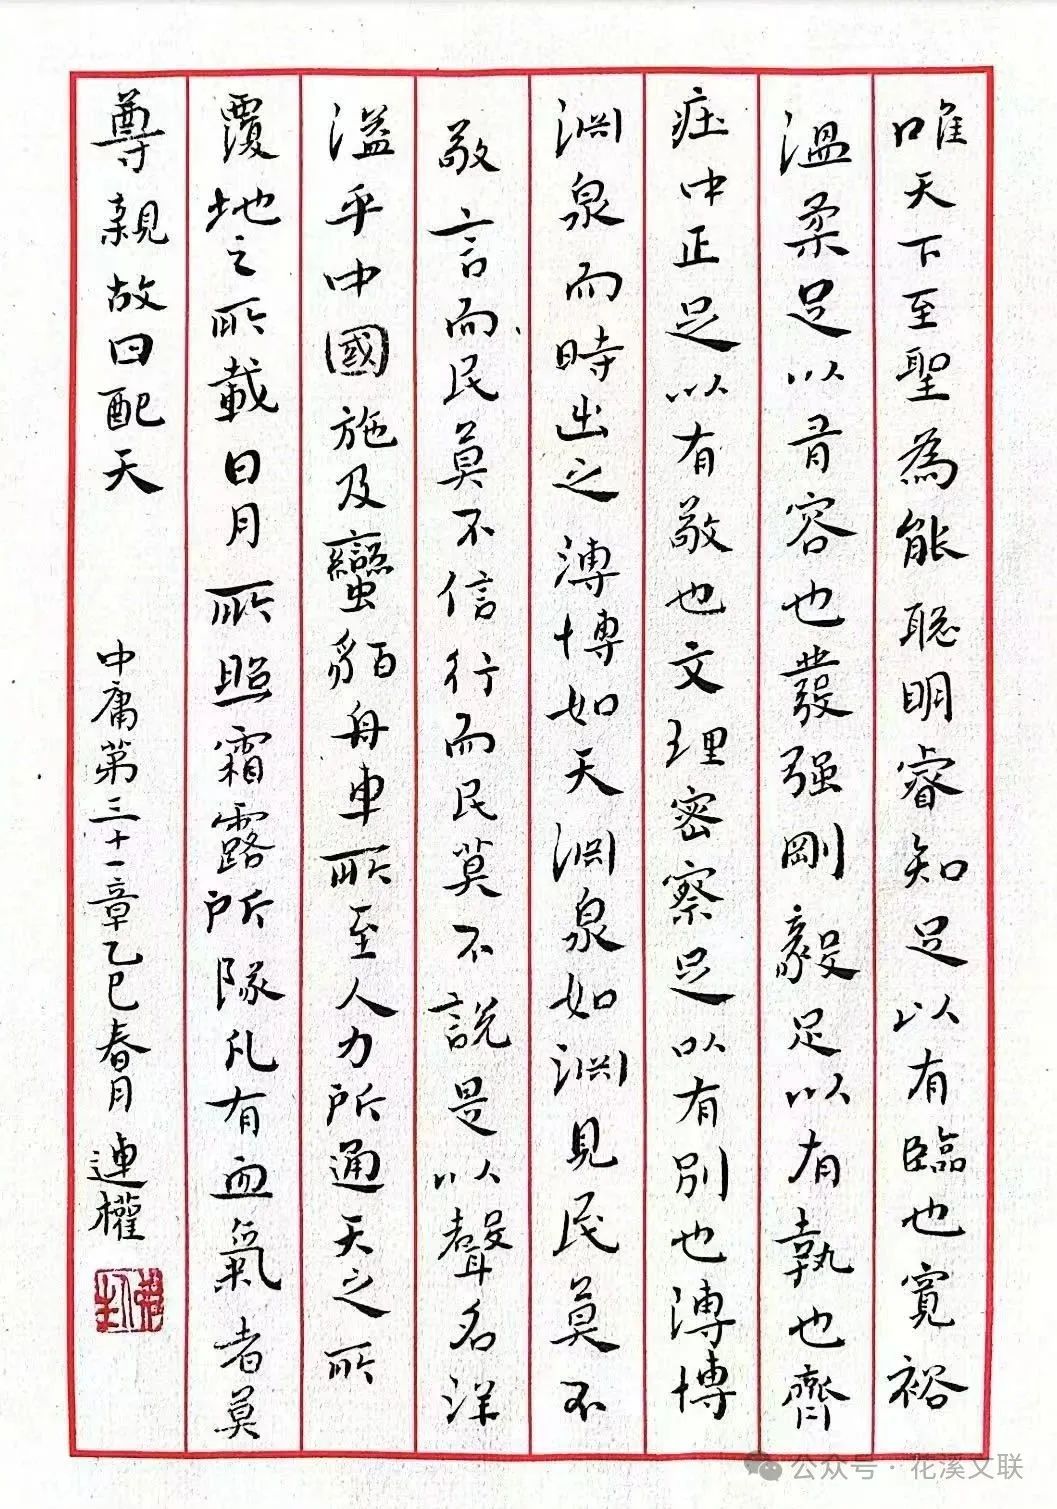 唯天下至聖為能聡明睿知足以有臨也寬裕
溫柔足以有容也發强剛毅足以有執也齊
莊中正足以有敬也文理密察足以有別也溥博
淵泉而時出之溥博如天淵泉如淵見民莫不
敬言而民莫不信行而民莫不説是以聲名洋
溢乎中國施及蠻貊舟車所至人力所通天之所
覆地之所載日月所照霜露所隊凡有血氣者莫
尊親故曰配天
中庸第三十一章乙巳春月連權
公众号·花溪文联